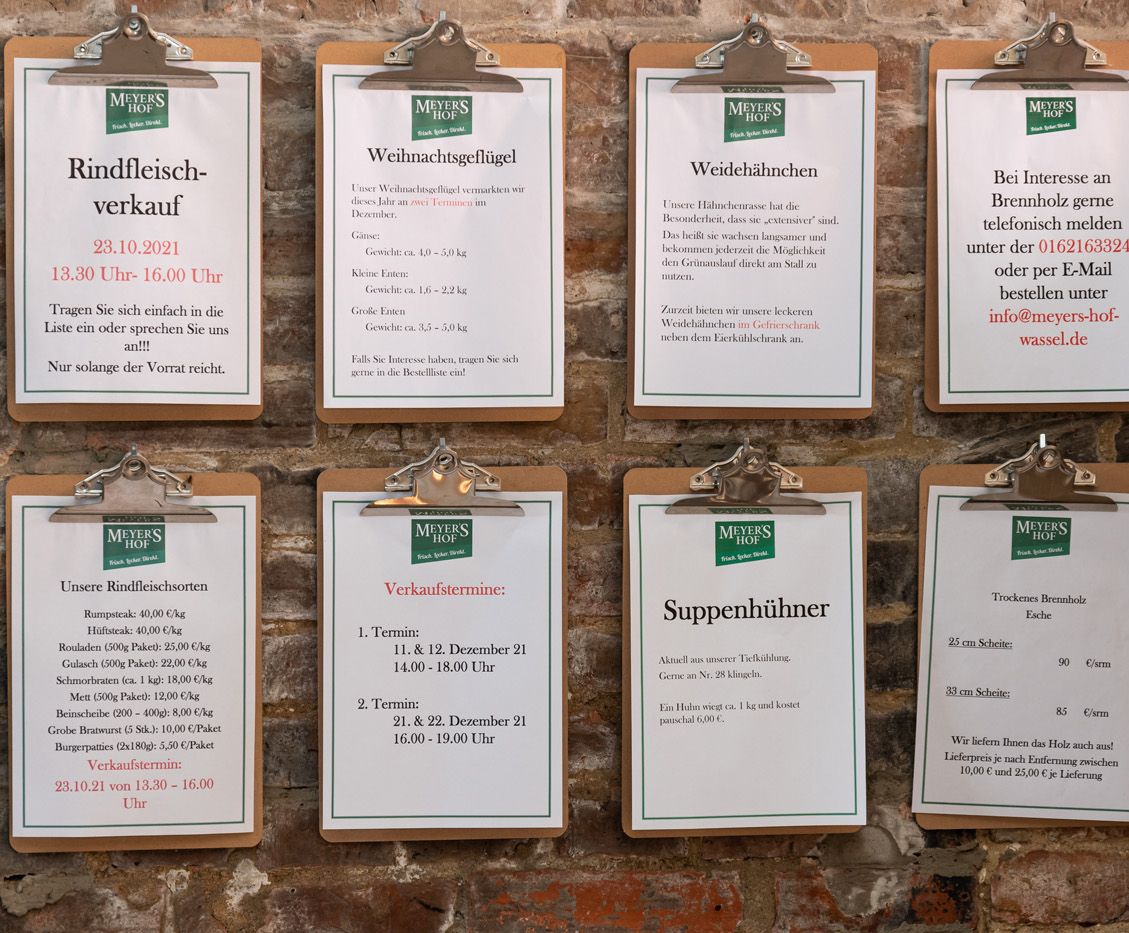 MEYER'S
HOF
Frisch. Lecker. Direkt.
Rindfleisch-
verkauf
23.10.2021
13.30 Uhr- 16.00 Uhr
Tragen Sie sich einfach in die
Liste ein oder sprechen Sie uns
an!!!
Nur solange der Vorrat reicht.
MEYER'S
HOF
Frisch. Lecker. Direkt.
Weihnachtsgeflügel
Unser Weihnachtsgeflügel vermarkten wir
dieses Jahr an zwei Terminen im
Dezember.
Gänse:
Gewicht: ca. 4,0 – 5,0 kg
Kleine Enten:
Gewicht: ca. 1,6 – 2,2 kg
Große Enten
Gewicht: ca. 3,5 – 5,0 kg
Falls Sie Interesse haben, tragen Sie sich
gerne in die Bestellliste ein!
MEYER'S
HOF
Frisch. Lecker. Direkt.
Weidehähnchen
Unsere Hähnchenrasse hat die
Besonderheit, dass sie „extensiver" sind.
Das heißt sie wachsen langsamer und
bekommen jederzeit die Möglichkeit
den Grünauslauf direkt am Stall zu
nutzen.
Zurzeit bieten wir unsere leckeren
Weidehähnchen im Gefrierschrank
neben dem Eierkühlschrank an.
MEYER'S
HOF
Frisch. Lecker. Direkt.
Bei Interesse an
Brennholz gerne
telefonisch melden
unter der 0162163324
oder per E-Mail
bestellen unter
info@meyers-hof-
wassel.de
MEYER'S
HOF
Frisch. Lecker. Direkt.
Unsere Rindfleischsorten
Rumpsteak: 40,00 €/kg
Hüftsteak: 40,00 €/kg
Rouladen (500g Paket): 25,00 €/kg
Gulasch (500g Paket): 22,00 €/kg
Schmorbraten (ca. 1 kg): 18,00 €/kg
Mett (500g Paket): 12,00 €/kg
Beinscheibe (200 – 400g): 8,00 €/kg
Grobe Bratwurst (5 Stk.): 10,00 €/Paket
Burgerpatties (2x180g): 5,50 €/Paket
Verkaufstermin:
23.10.21 von 13.30 – 16.00
Uhr
MEYER'S
HOF
Frisch. Lecker. Direkt.
Verkaufstermine:
1. Termin:
11. & 12. Dezember 21
14.00 - 18.00 Uhr
2. Termin:
21. & 22. Dezember 21
16.00 - 19.00 Uhr
MEYER'S
HOF
Frisch. Lecker. Direkt.
Suppenhühner
Aktuell aus unserer Tiefkühlung.
Gerne an Nr. 28 klingeln.
Ein Huhn wiegt ca. 1 kg und kostet
pauschal 6,00 €.
MEYER'S
HOF
Frisch. Lecker. Direkt.
Trockenes Brennholz
Esche
25 cm Scheite:
90 €/srm
33 cm Scheite:
85 €/srm
Wir liefern Ihnen das Holz auch aus!
Lieferpreis je nach Entfernung zwischen
10,00 € und 25,00 € je Lieferung